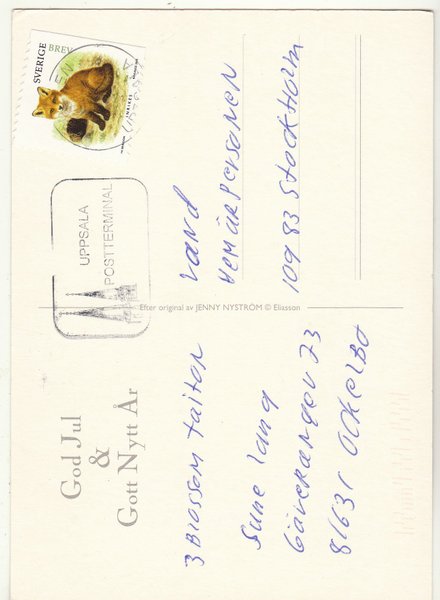 God Jul
&
Gott Nytt År
3 Blossom taiton
Sune Lang
Gäverängev 73
81631 Ockelbo
Efter original av JENNY NYSTRÖM © Eliasson
SVERIGE BREV
UPPSALA
POSTTERMINAL
Land
Vem är personen
109 83 Stockholm